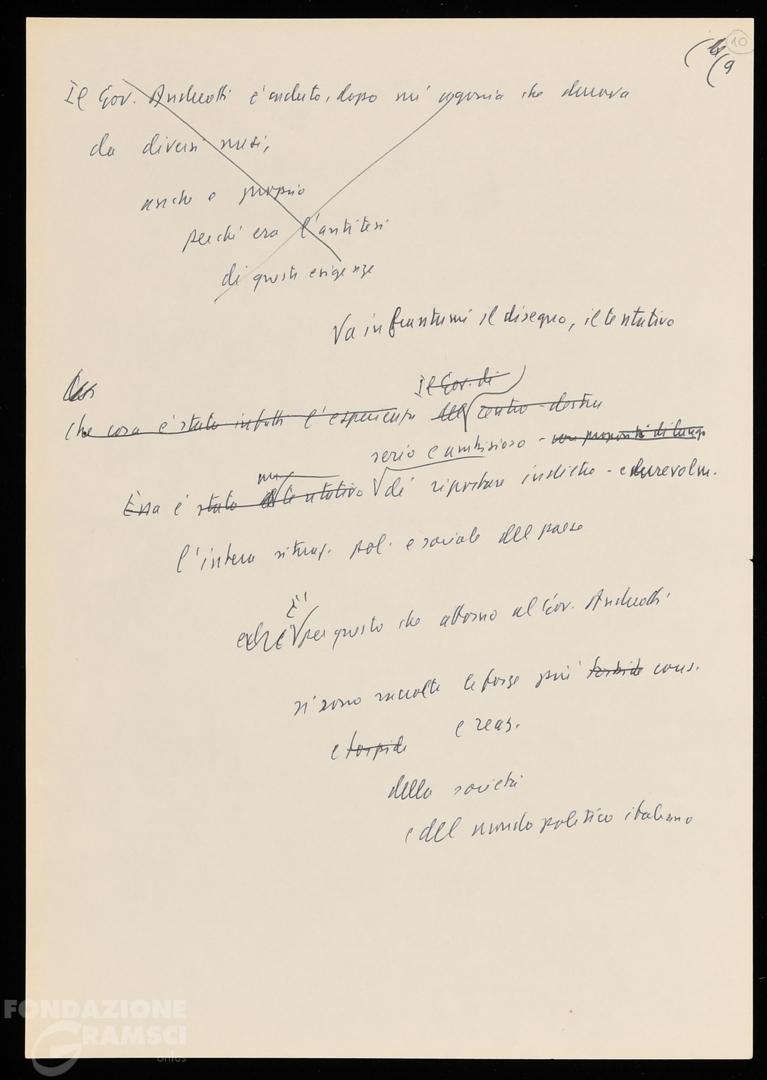 10
9
Il Gov. Andreotti è caduto, dopo un' agonia che durava
da diversi mesi,
anche e proprio
perché era l'antitesi
di queste esigenze
Va in frantumi il disegno, il tentativo
Il Gov. di
Che cosa è stata infatti l'esperienza del centro-destra
serio e ambizioso - con propositi di lungo
Essa è stato il tentativo di riportare indietro - e durevolm.
l'intera situaz. pol. e sociale del paese
È
per questo che attorno al Gov. Andreotti
si sono raccolte le forze più torbide cons.
e torpide e reaz.
della società
e del mondo politico italiano
FONDAZIONE
GRAMSCI
onlus